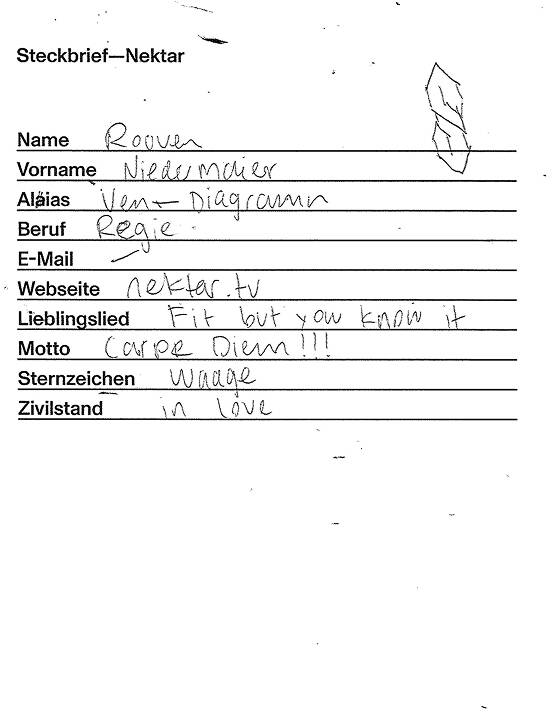 Steckbrief—Nektar
Name Rooven
Vorname Niedermaier
Alaias Ven-Diagramm
Beruf Regie
E-Mail –
Webseite nektar.tv
Lieblingslied Fit but you know it
Motto Carpe Diem!!!
Sternzeichen Waage
Zivilstand in love